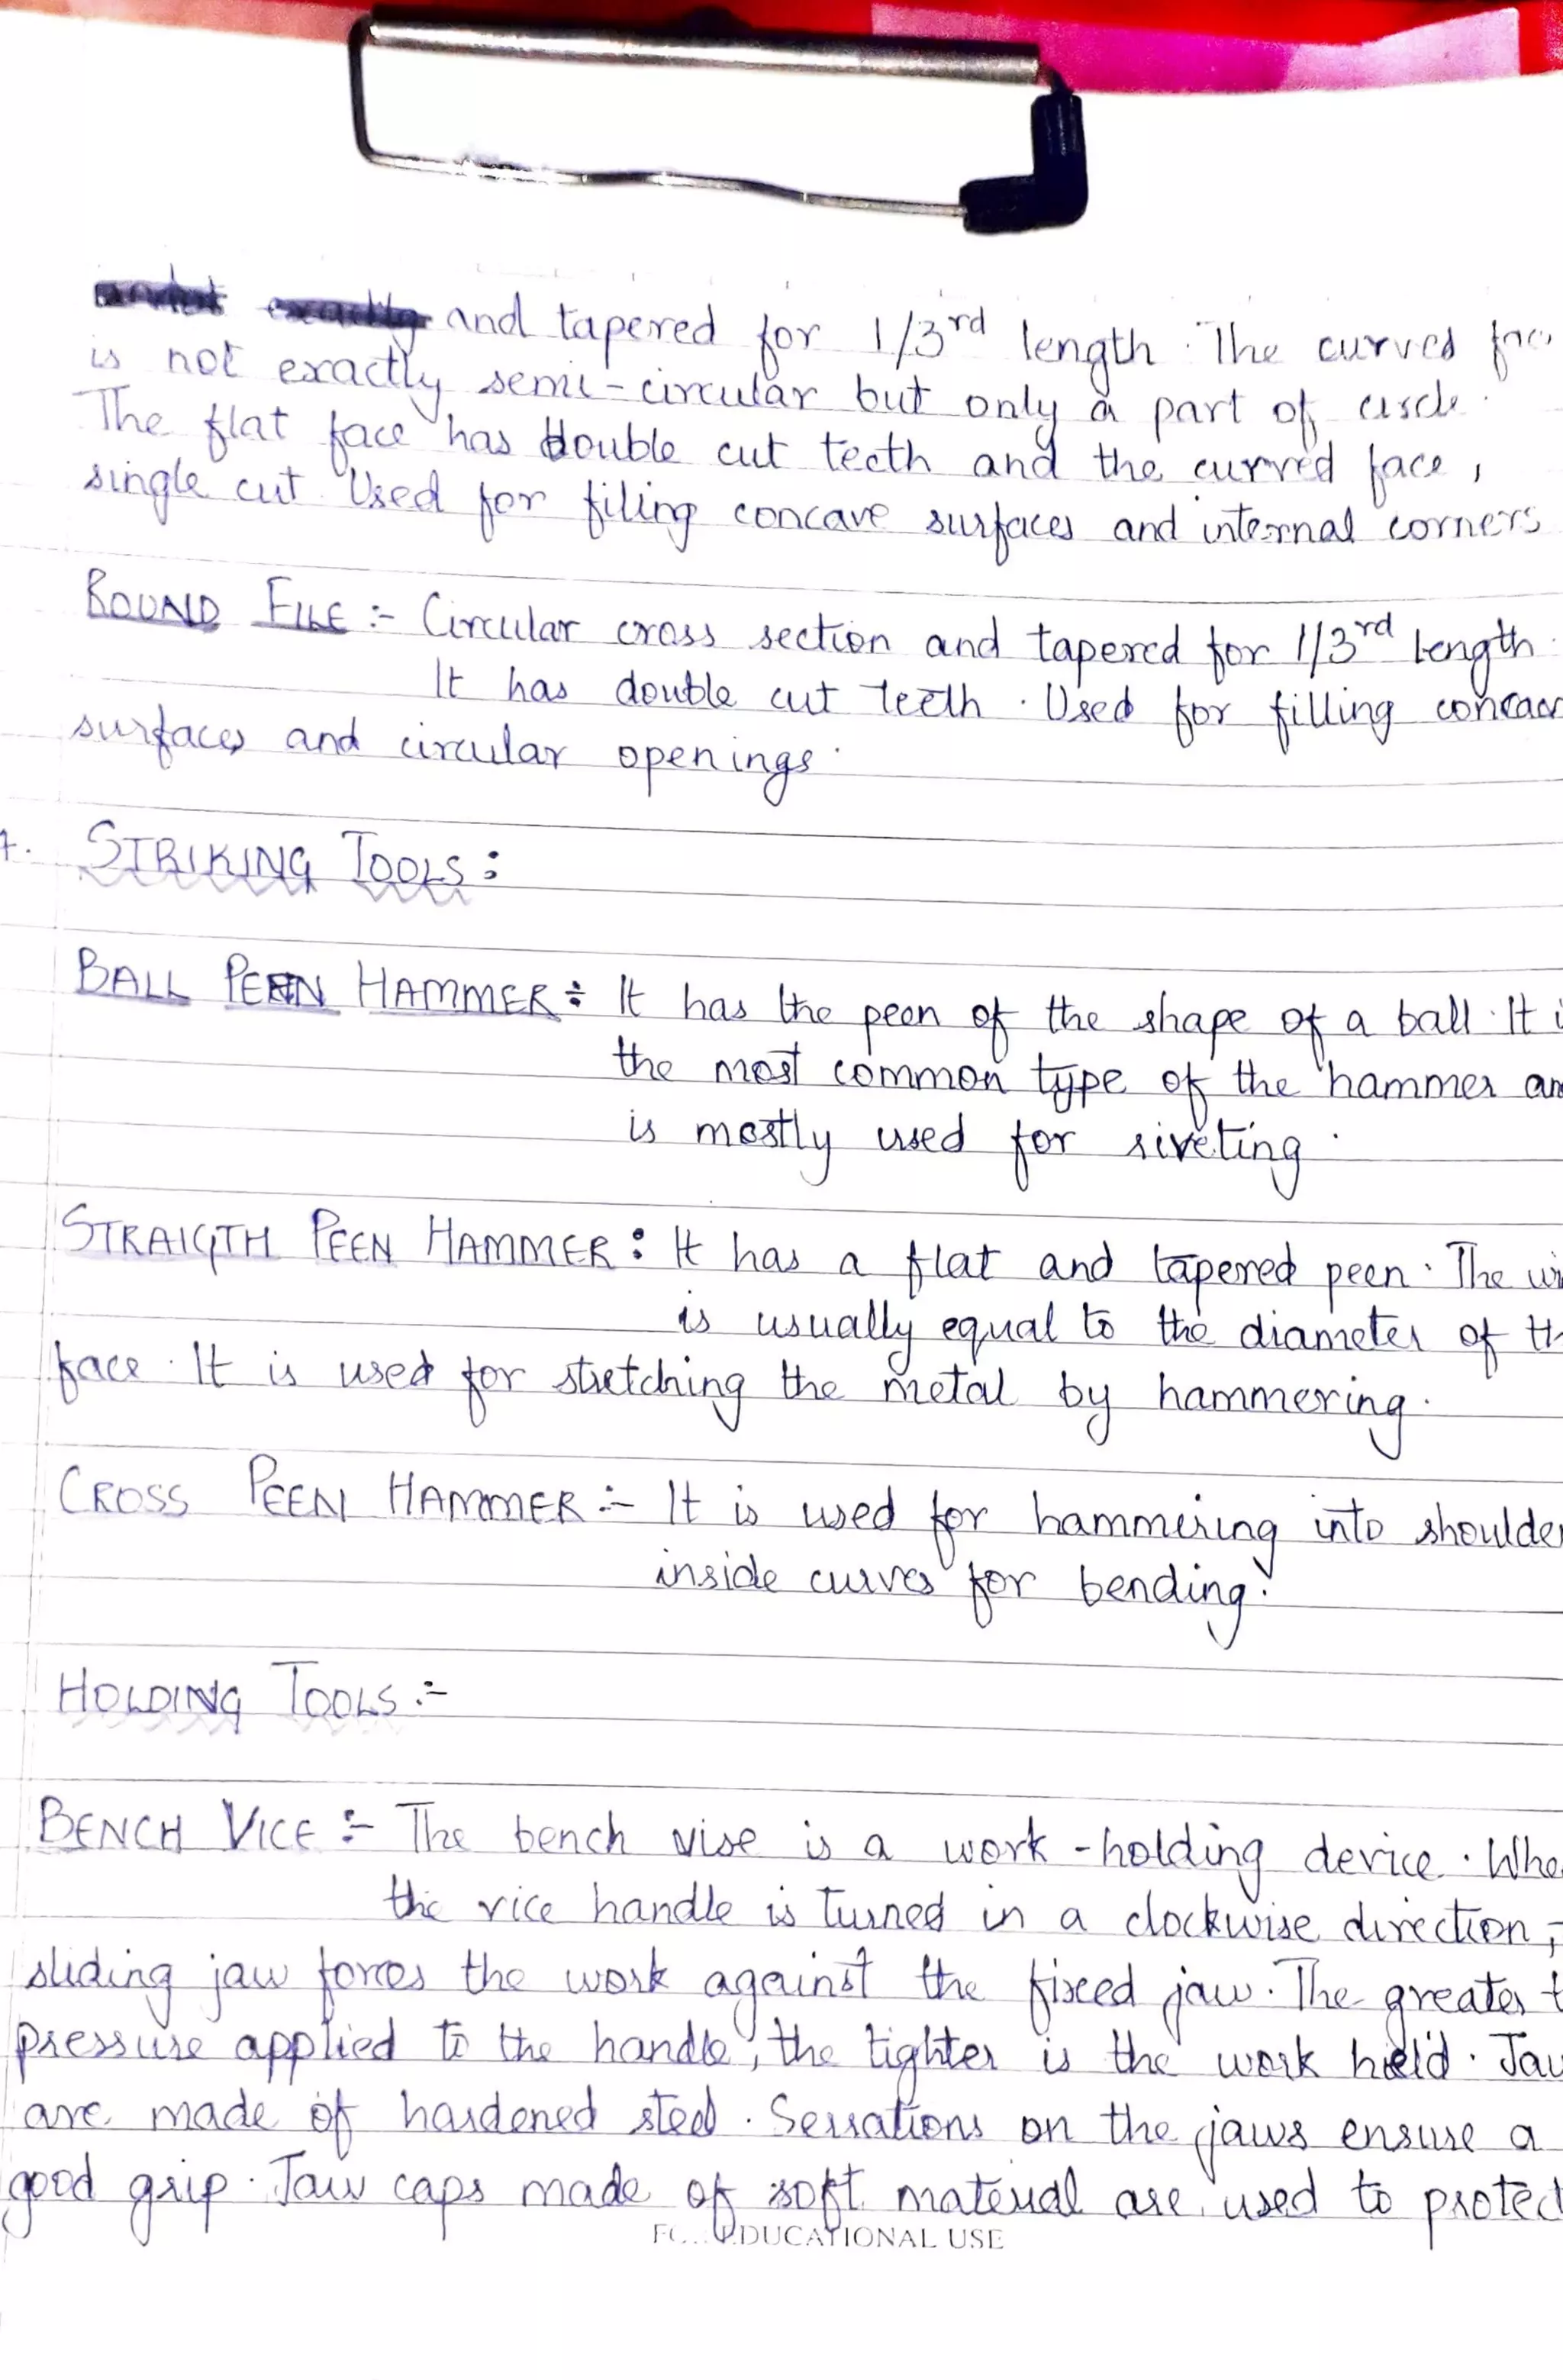 and tapered for 1/3rd length. The curved fac
is not exactly semi-circular but only a part of circle.
The flat face has double cut teeth and the curved face,
single cut. Used for filing concave surfaces and internal corners
ROUND FILE :- Circular cross section and tapered for 1/3rd length.
It has double cut teeth. Used for filling concav
surfaces and circular openings.
STRIKING TOOLS :
BALL PEEN HAMMER : It has the peen of the shape of a ball. It i
the most common type of the hammer an
is mostly used for riveting.
STRAIGTH PEEN HAMMER : It has a flat and tapered peen. The wi
is usually equal to the diameter of th
face. It is used for stretching the metal by hammering.
CROSS PEEN HAMMER :- It is used for hammering into shoulder
inside curves for bending.
HOLDING TOOLS :-
BENCH VICE :- The bench vise is a work-holding device. Whe
the vice handle is turned in a clockwise direction,
sliding jaw forces the work against the fixed jaw. The greater t
pressure applied to the handle, the tighter is the work held. Jaw
are made of hardened steel. Serrations on the jaws ensure a
good grip. Jaw caps made of soft material are used to protect
EDUCATIONAL USE